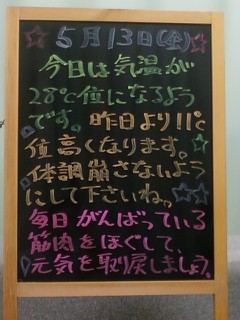 5月13日(金)
今日は気温が
28℃位になるよう
です。昨日より11℃
位高くなります。
体調崩さないよう
にして下さいねっ
毎日がんばっている
筋肉をほぐして、
元気を取り戻しましょう。